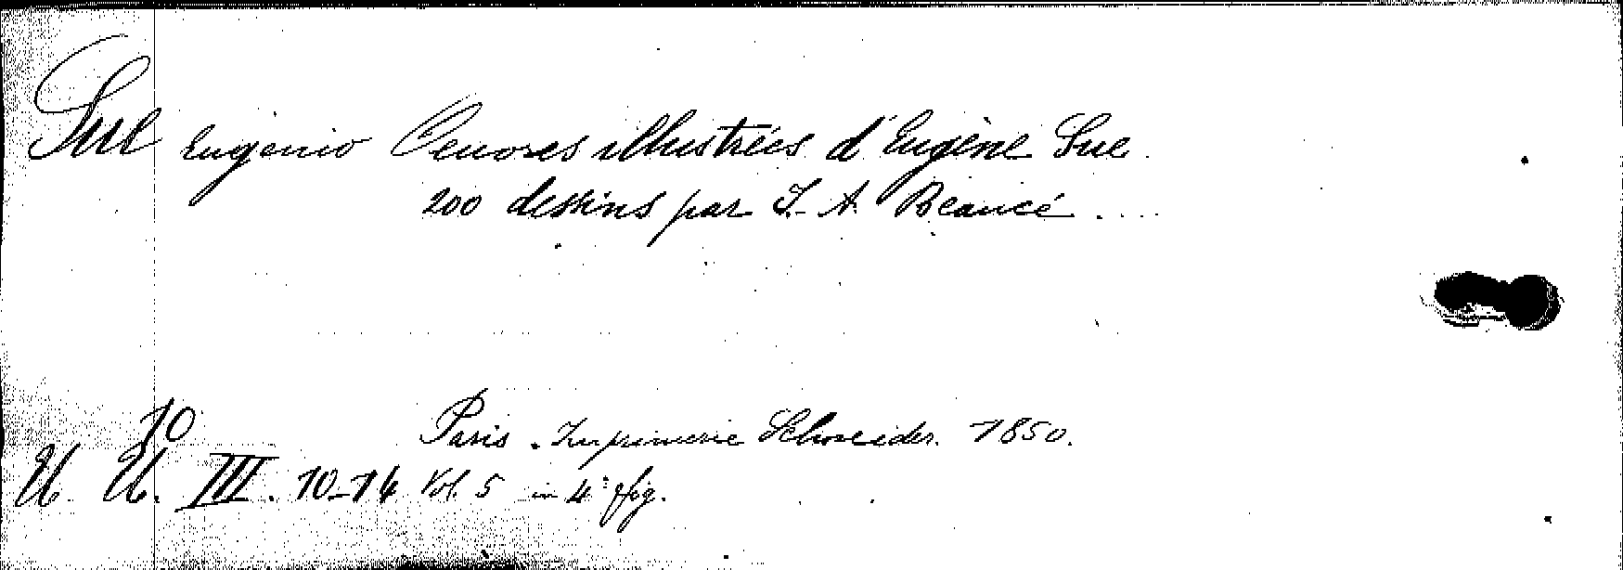 Sue Eugenio Oeuvres illustrées d'Eugène Sue.
200 dessins par J. A. Beaucé ....
Paris. Imprimerie Schneider. 1850.
10
U. U. III. 10-14 Vol. 5 in 4° fig.